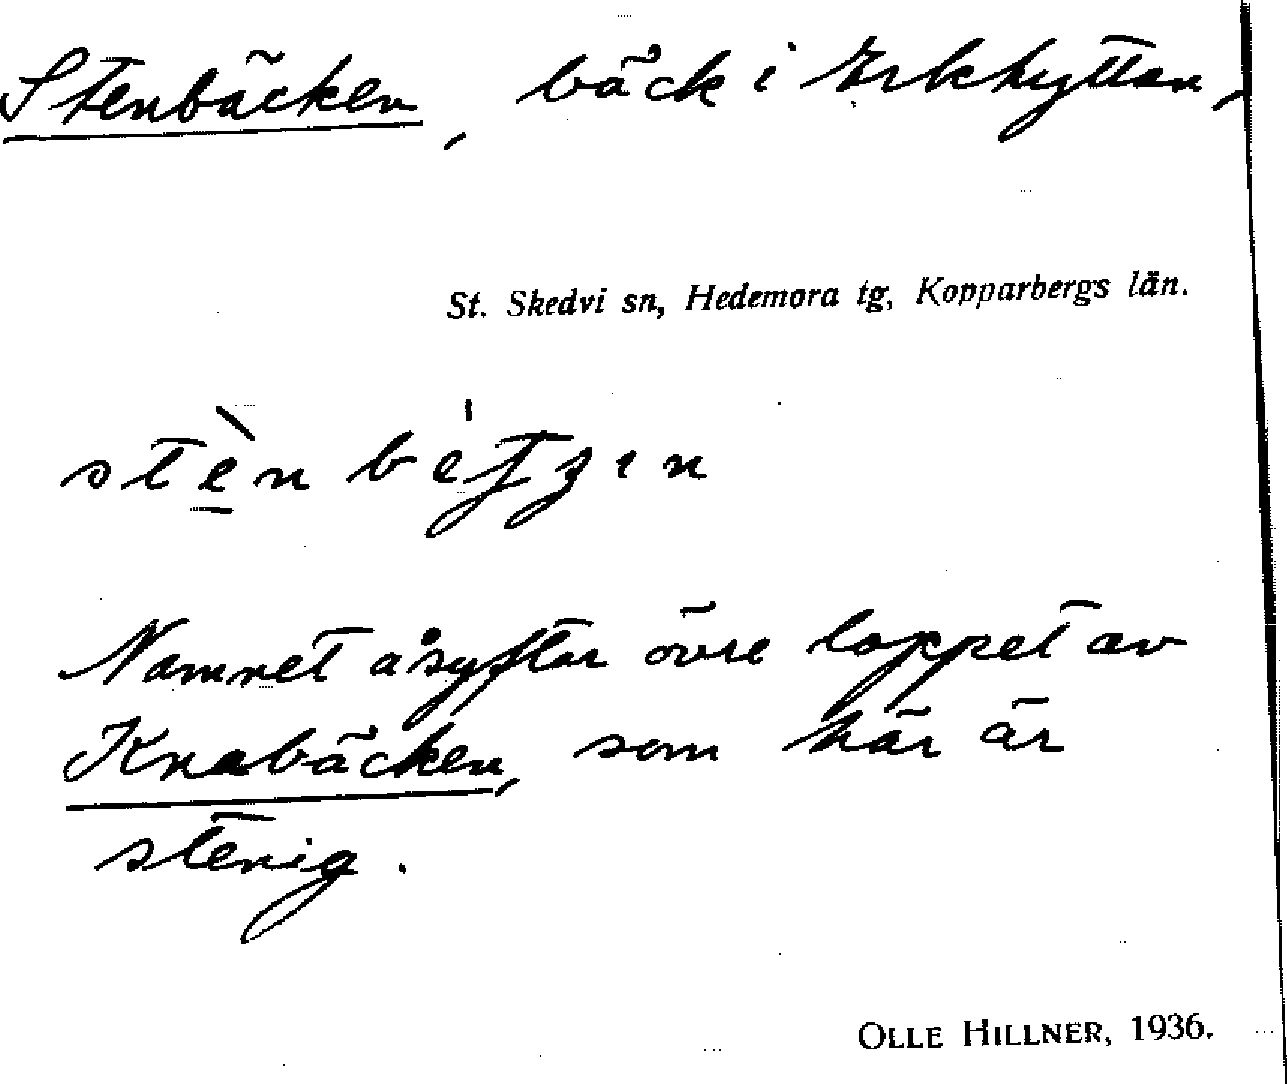 Stenbäcken, bäck i Erkhyttan,
St. Skedvi sn, Hedemora tg, Kopparbergs län.
Namnet åsyftar övre loppet av
Knabäcken, som här är
stenig.
OLLE HILLNER, 1936.